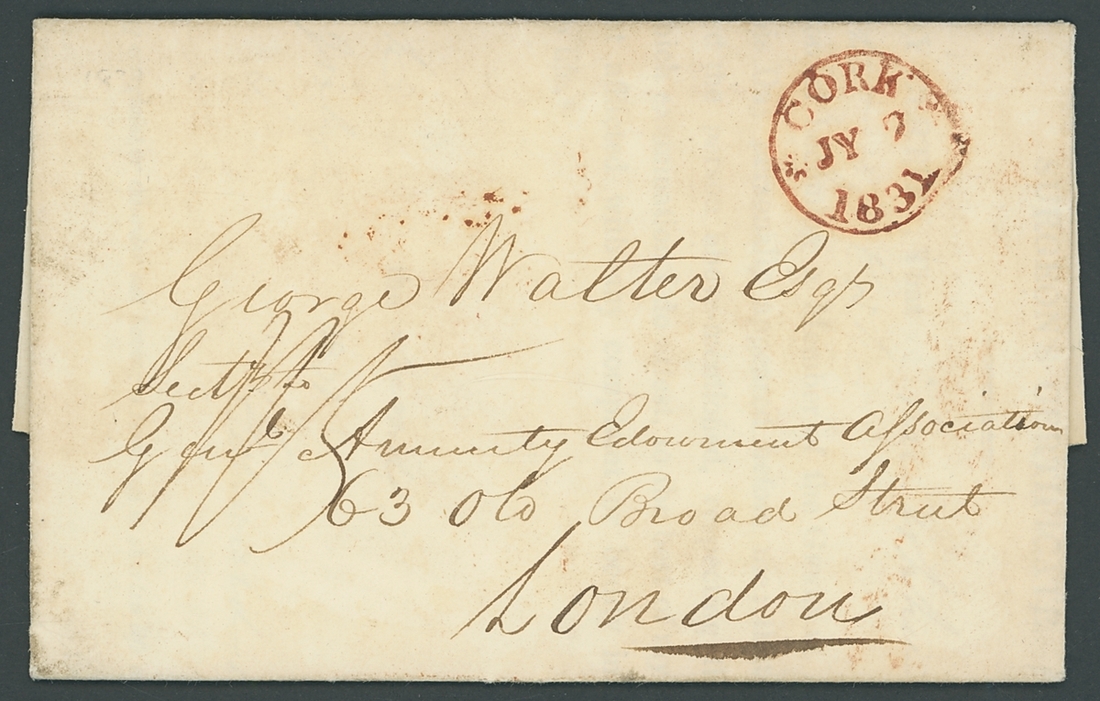 CORK
JY 7
1831
George Walter Esqr
Secty to
Genl Annuity Edowment Association
63 Old Broad Street
London